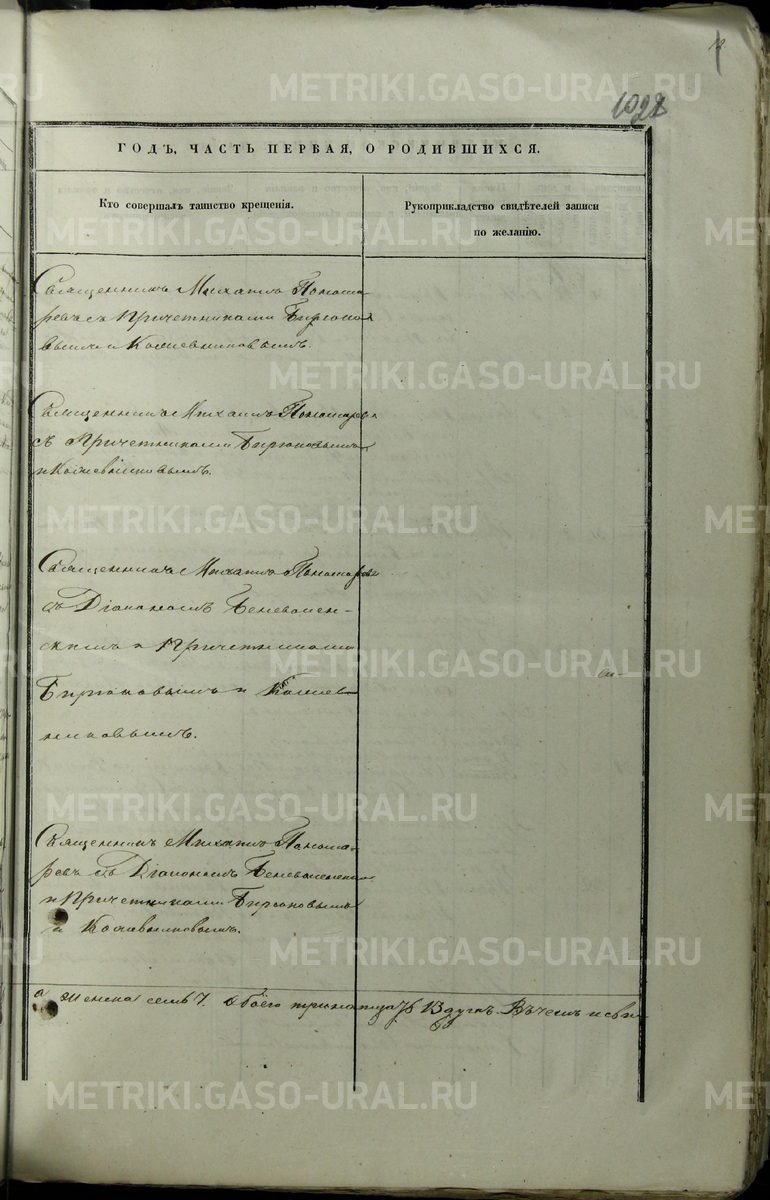 12
1028
ГОДЪ, ЧАСТЬ ПЕРВАЯ, О РОДИВШИХСЯ.
Кто совершалъ таинство крещенія.
Рукоприкладство свидѣтелей записи
по желанію.
Священникъ Михаилъ Понома-
ревъ съ Причетниками Бирюко-
вымъ и Кожевниковымъ.
Священникъ Михаилъ Пономаревъ
съ Причетниками Бирюковымъ
и Кожевниковымъ.
Священникъ Михаилъ Пономаревъ
съ Діакономъ Беневолен-
скимъ и Причетниками
Бирюковымъ и Кожев-
никовымъ.
Священникъ Михаилъ Понома-
ревъ съ Діакономъ Беневоленски
и Причетниками Бирюковымъ
и Кожевниковымъ.
а женска семь 7. обоего тринатцать 13 душъ. Въ чемъ и сви-
METRIKI.GASO-URAL.RU